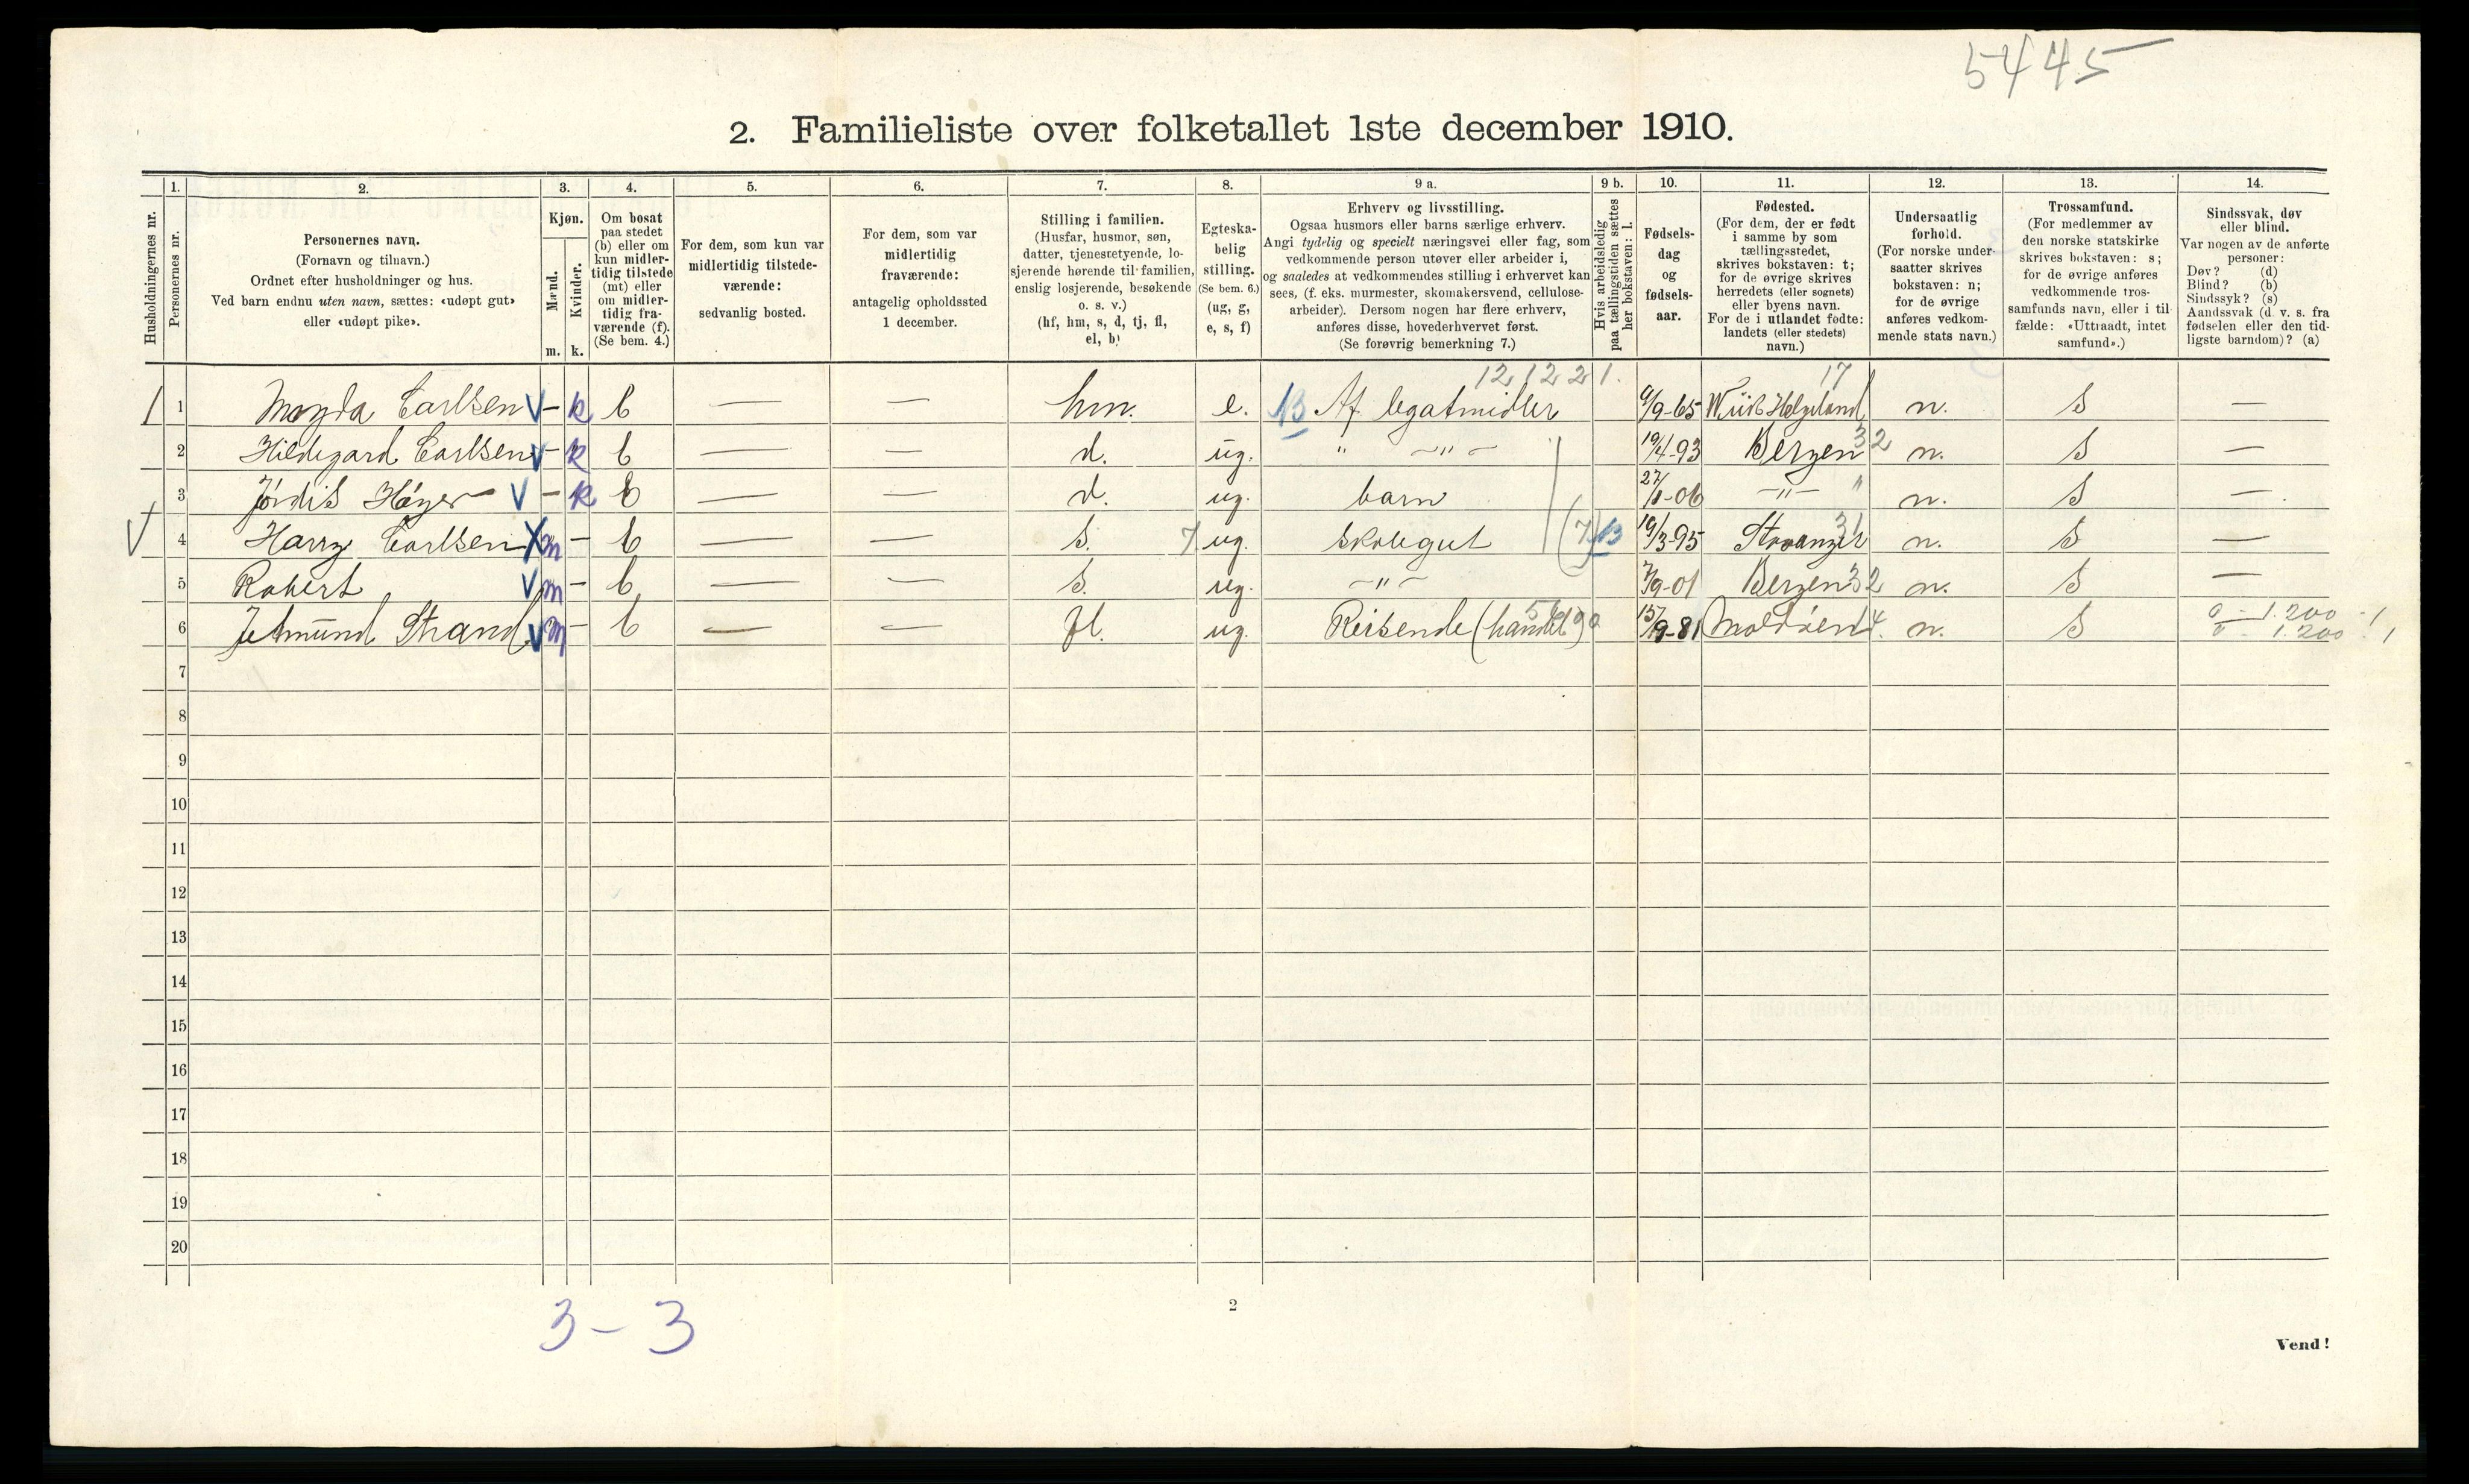 5445
2. Familieliste over folketallet 1ste december 1910.
1. 2. 3. 4. 5. 6. 7. 8. 9 a. 9 b. 10. 11. 12. 13. 14.
Husholdningernes nr.
Personernes nr.
Personernes navn.
(Fornavn og tilnavn.)
Ordnet efter husholdninger og hus.
Ved barn endnu uten navn, sættes: «udøpt gut»
eller «udøpt pike».
Kjøn.
Mænd.
Kvinder.
m. k.
Om bosat
paa stedet
(b) eller om
kun midler-
tidig tilstede
(mt) eller
om midler-
tidig fra-
værende (f).
(Se bem. 4.)
For dem, som kun var
midlertidig tilstede-
værende:
sedvanlig bosted.
For dem, som var
midlertidig
fraværende:
antagelig opholdssted
1 december.
Stilling i familien.
(Husfar, husmor, søn,
datter, tjenestetyende, lo-
sjerende hørende til familien,
enslig losjerende, besøkende
o. s. v.)
(hf, hm, s, d, tj, fl,
el, b)
Egteska-
belig
stilling.
(Se bem. 6.)
(ug, g,
e, s, f)
Erhverv og livsstilling.
Ogsaa husmors eller barns særlige erhverv.
Angi tydelig og specielt næringsvei eller fag, som
vedkommende person utøver eller arbeider i,
og saaledes at vedkommendes stilling i erhvervet kan
sees, (f. eks. murmester, skomakersvend, cellulose-
arbeider). Dersom nogen har flere erhverv,
anføres disse, hovederhvervet først.
(Se forøvrig bemerkning 7.)
Hvis arbeidsledig
paa tællingstiden sættes
her bokstaven: l.
Fødsels-
dag
og
fødsels-
aar.
Fødested.
(For dem, der er født
i samme by som
tællingsstedet,
skrives bokstaven: t;
for de øvrige skrives
herredets (eller sognets)
eller byens navn.
For de i utlandet fødte:
landets (eller stedets)
navn.)
Undersaatlig
forhold.
(For norske under-
saatter skrives
bokstaven: n;
for de øvrige
anføres vedkom-
mende stats navn.)
Trossamfund.
(For medlemmer av
den norske statskirke
skrives bokstaven: s;
for de øvrige anføres
vedkommende tros-
samfunds navn, eller i til-
fælde: «Uttraadt, intet
samfund».)
Sindssvak, døv
eller blind.
Var nogen av de anførte
personer:
Døv? (d)
Blind? (b)
Sindssyk? (s)
Aandssvak (d. v. s. fra
fødselen eller den tid-
ligste barndom)? (a)
12 12 2 1. 17
1 1 Magda Carlsen V - k b — — hm. e. 13 Af legatmidler 9/9-65 Helgeland n. S —
2 Hildegard Carlsen V - k b — — d. ug. " —"— 19/4-93 Bergen 32 n. S —
3 Jórdis Höyer V - k b — — d. ug. barn 27/1-06 —"— " n. S —
V 4 Harry Carlsen X m - b — — S. 7 ug. Skolegut (7) 13 19/3-95 Stavanger 31 n. S —
5 Robert V m - b — — S. ug. —"— 7/9-01 Bergen 32 n. S —
6 Jetmund Strand V m - b — — fl. ug. Reisende (handel) 15/9-81 Moldøen 14. n. S 0 - 1.200 - 1
0 - 1.200 : 1
7
8
9
10
11
12
13
14
15
16
17
18
19
20
3 - 3
2
Vend!